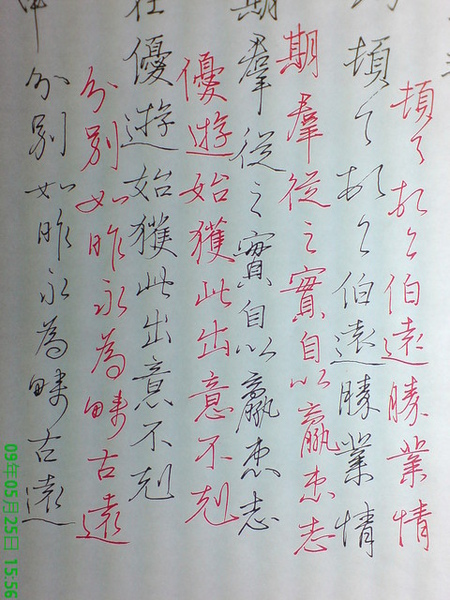 頓々首々伯遠勝業情
頓々首々伯遠勝業情
期羣從之實自以羸患志
期羣從之實自以羸患志
優遊始獲此出意不剋
在優遊始獲此出意不剋
分別如昨永為疇古遠
申分別如昨永為疇古遠
09年05月25日 15:56